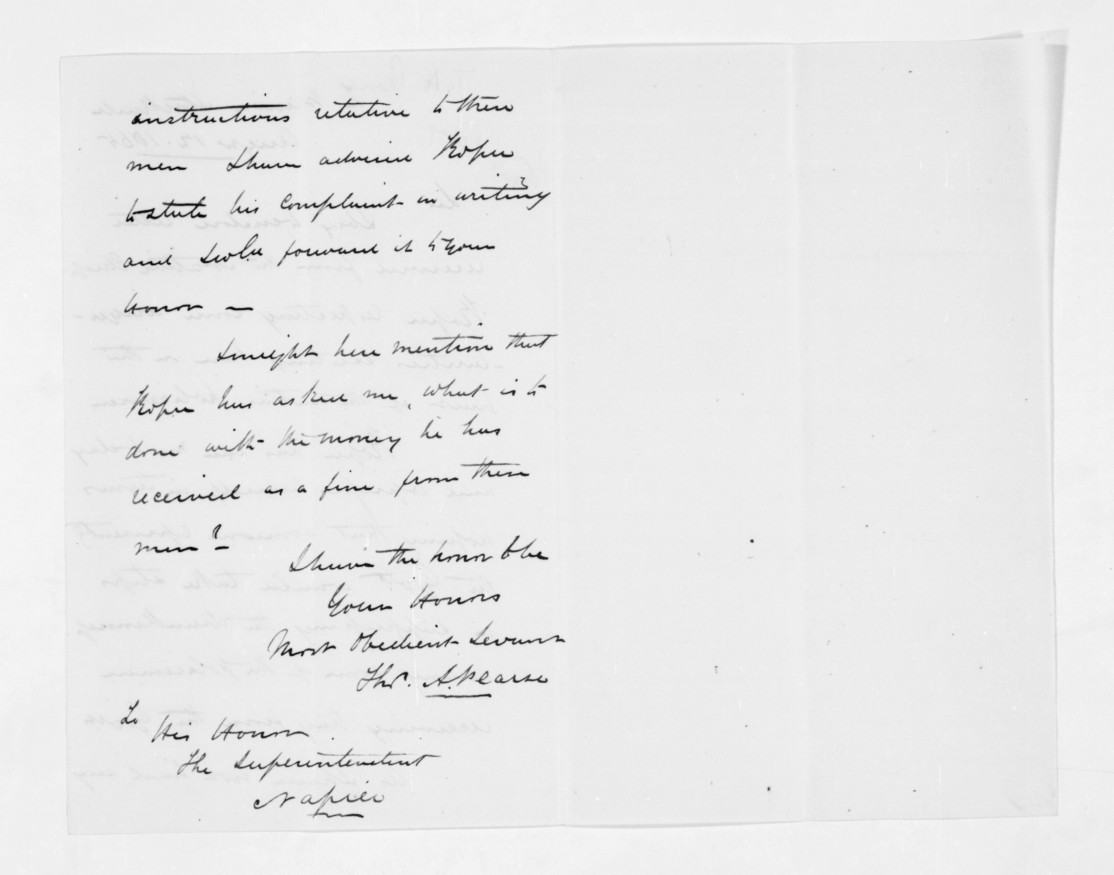 instructions relative to these
men I have advised Roper
to state his complaint in writing
and I will forward it to your
Honor —
I might here mention that
Roper has asked me, what is to
done with the money he has
received as a fine from these
men? —
I have the honor to be
Your Honors
Most Obedient Servant
Thos. A. Pearse
To
His Honor
The Superintendent
Napier